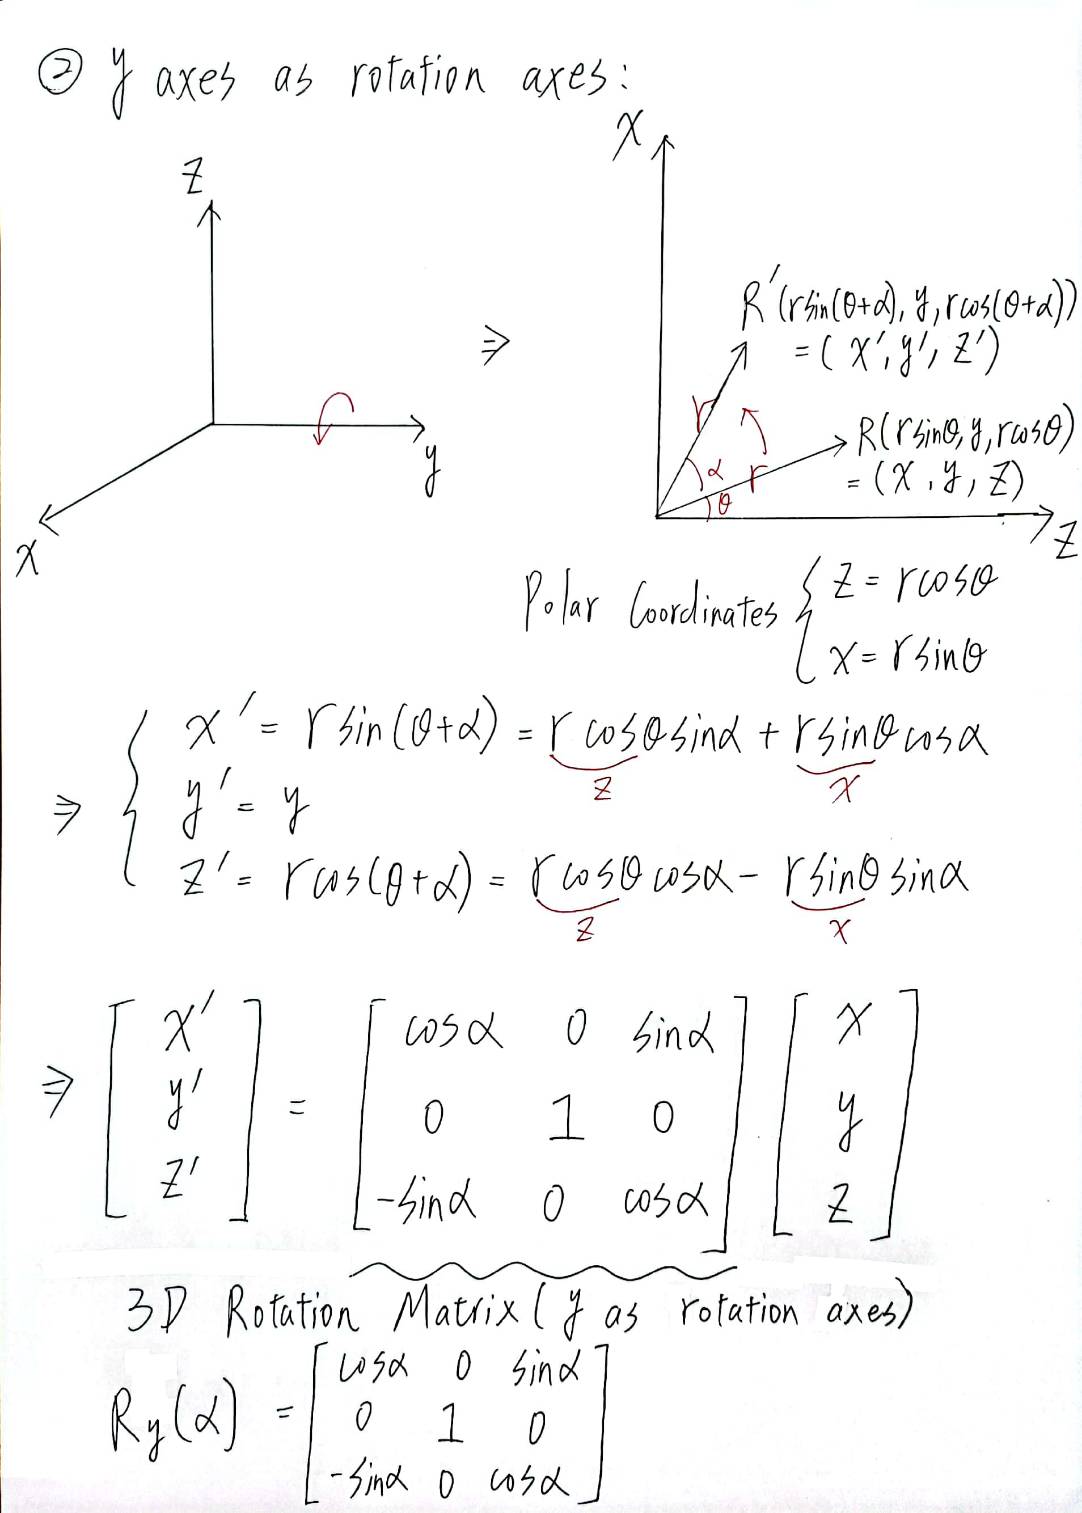 ② y axes as rotation axes:
z
y
x
⇒
x
z
R'(rsin(θ+α), y, rcos(θ+α))
=(x', y', z')
R(rsinθ, y, rcosθ)
=(x, y, z)
r
r
α
θ
Polar Coordinates { z = rcosθ
x = rsinθ
⇒ { x' = rsin(θ+α) = r cosθ sinα + rsinθ cosα
z x
y' = y
z' = rcos(θ+α) = rcosθ cosα - rsinθ sinα
z x
⇒ [ x' ] [ cosα 0 sinα ] [ x ]
[ y' ] = [ 0 1 0 ] · [ y ]
[ z' ] [ -sinα 0 cosα ] [ z ]
3D Rotation Matrix (y as rotation axes)
[ cosα 0 sinα ]
Ry(α) = [ 0 1 0 ]
[ -sinα 0 cosα ]